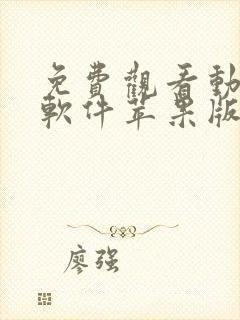 免費觀看動
軟件苹果版
廖强